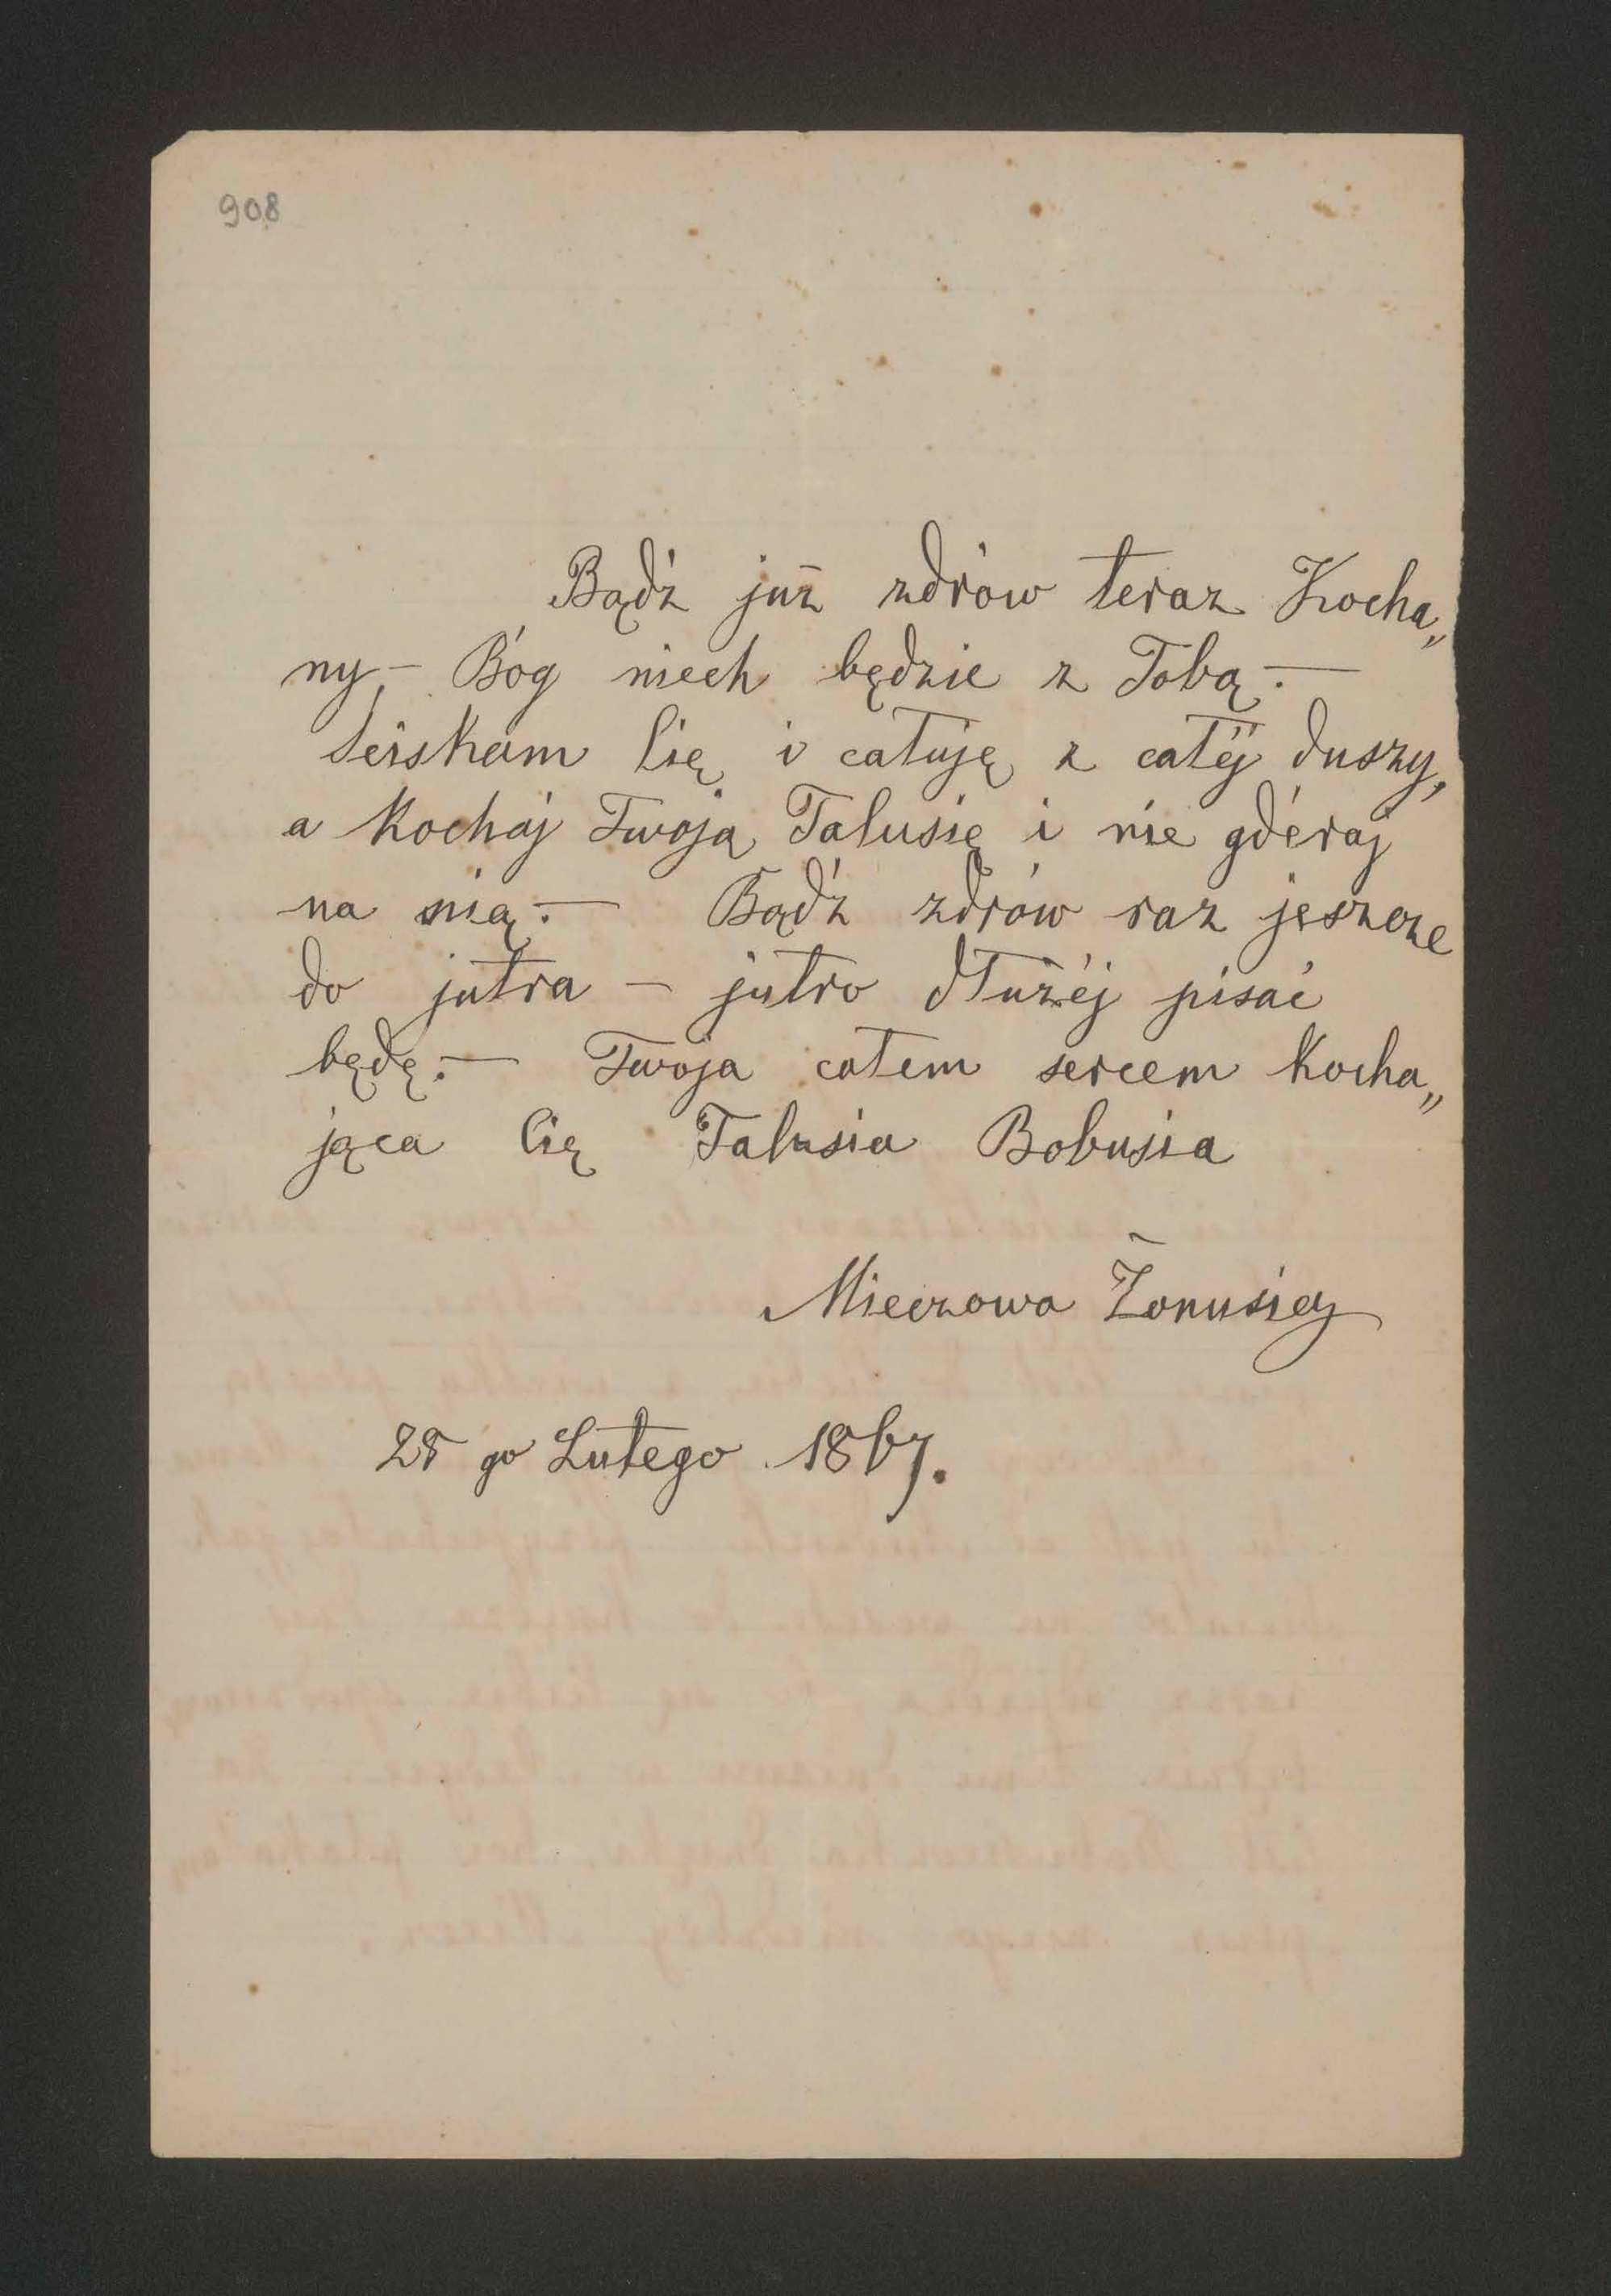 908
Bądź już zdrów teraz Kocha„
ny – Bóg niech będzie z Tobą. —
Ściskam Cię i całuję z całéj duszy,
a kochaj Twoją Talusię i nie gdéraj
na nią. — Bądź zdrów raz jeszcze
do jutra – jutro dłużéj pisać
będę. — Twoja całem sercem kocha„
jąca Cię Talusia Bobusia
Mieczowa Żonusia
25 go Lutego 1867.